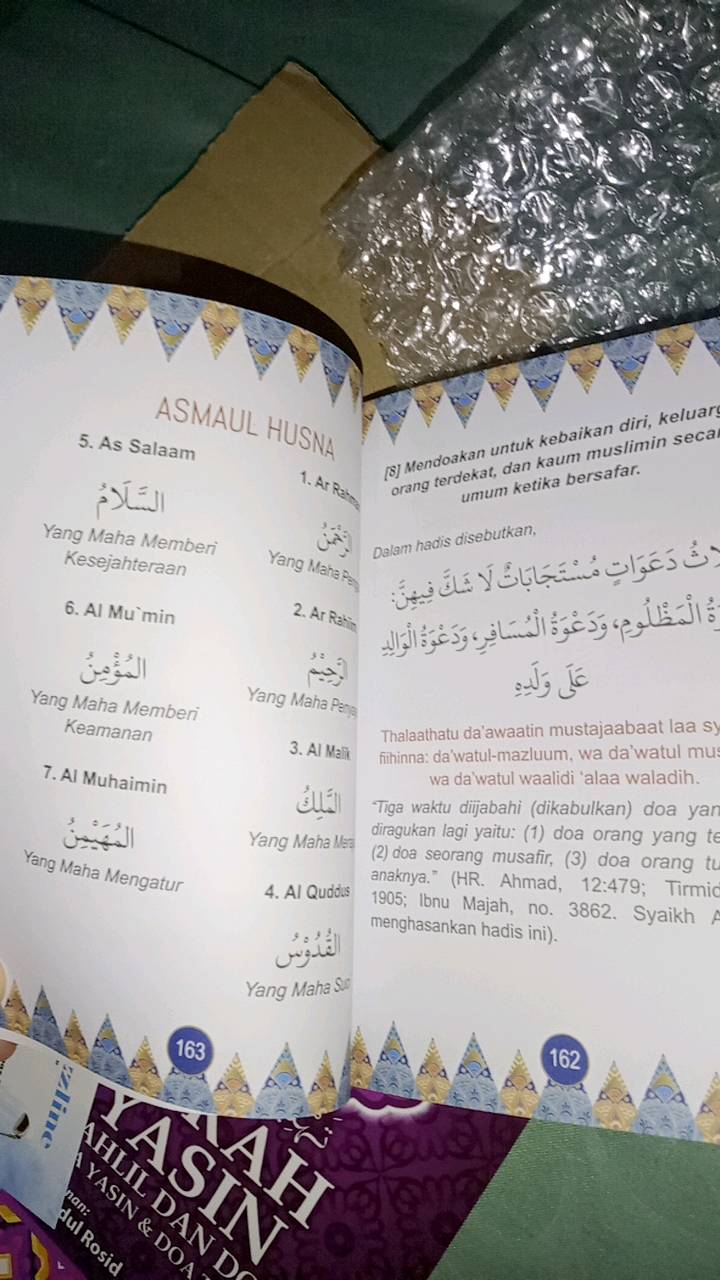 ASMAUL HUSNA
1. Ar Rahma
الرَّحْمٰنُ
Yang Maha Pen
2. Ar Rahiim
الرَّحِيْمُ
Yang Maha Penya
3. Al Malik
الْمَلِكُ
Yang Maha Mera
4. Al Quddus
الْقُدُّوْسُ
Yang Maha Suc
5. As Salaam
السَّلَامُ
Yang Maha Memberi
Kesejahteraan
6. Al Mu`min
الْمُؤْمِنُ
Yang Maha Memberi
Keamanan
7. Al Muhaimin
الْمُهَيْمِنُ
Yang Maha Mengatur
163
[8] Mendoakan untuk kebaikan diri, keluarg
orang terdekat, dan kaum muslimin seca
umum ketika bersafar.
Dalam hadis disebutkan,
دَعَوَاتٍ مُسْتَجَابَاتٌ لَا شَكَّ فِيهِنَّ:
الْمَظْلُومِ، وَدَعْوَةُ الْمُسَافِرِ، وَدَعْوَةُ الْوَالِدِ
عَلَى وَلَدِهِ
Thalaathatu da'awaatin mustajaabaat laa sy
fiihinna: da'watul-mazluum, wa da'watul mus
wa da'watul waalidi 'alaa waladih.
“Tiga waktu diijabahi (dikabulkan) doa yan
diragukan lagi yaitu: (1) doa orang yang te
(2) doa seorang musafir, (3) doa orang tu
anaknya.” (HR. Ahmad, 12:479; Tirmid
1905; Ibnu Majah, no. 3862. Syaikh A
menghasankan hadis ini).
162
RAH
YASIN
AHLIL DAN DO
YASIN & DOA
nan:
dul Rosid
zline